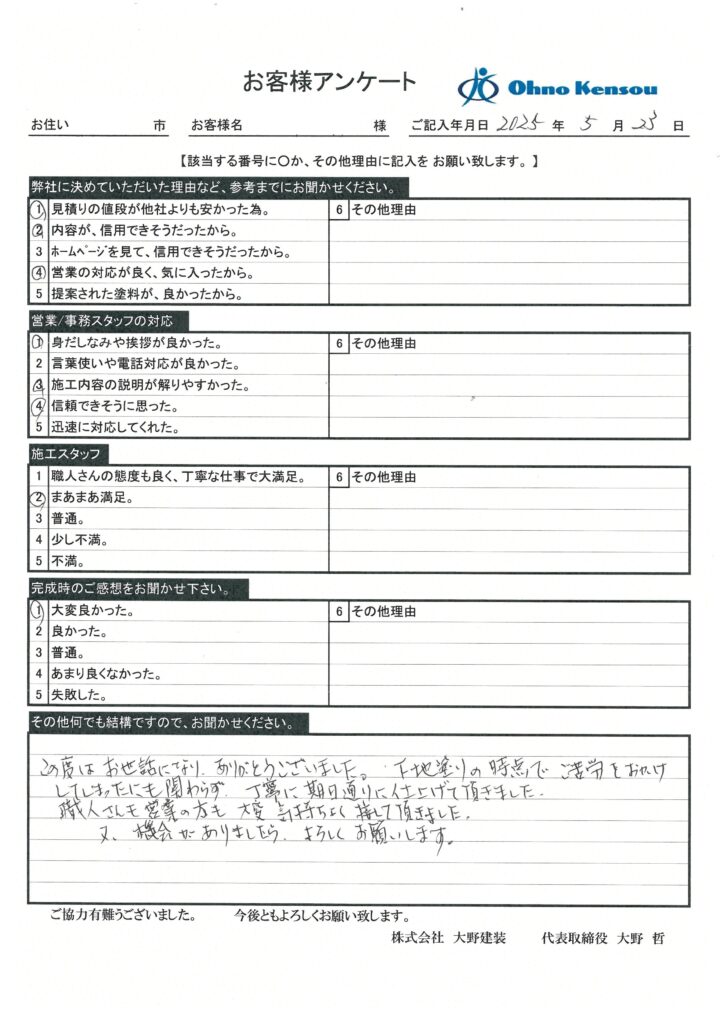 お客様アンケート
Ohno Kensou
お住い 市 お客様名 様 ご記入年月日 2025 年 5 月 23 日
【該当する番号に〇か、その他理由に記入を お願い致します。】
弊社に決めていただいた理由など、参考までにお聞かせください。
1 見積りの値段が他社よりも安かった為。
6 その他理由
2 内容が、信用できそうだったから。
3 ホームページを見て、信用できそうだったから。
4 営業の対応が良く、気に入ったから。
5 提案された塗料が、良かったから。
営業/事務スタッフの対応
1 身だしなみや挨拶が良かった。
6 その他理由
2 言葉使いや電話対応が良かった。
3 施工内容の説明が解りやすかった。
4 信頼できそうに思った。
5 迅速に対応してくれた。
施工スタッフ
1 職人さんの態度も良く、丁寧な仕事で大満足。
6 その他理由
2 まあまあ満足。
3 普通。
4 少し不満。
5 不満。
完成時のご感想をお聞かせ下さい。
1 大変良かった。
6 その他理由
2 良かった。
3 普通。
4 あまり良くなかった。
5 失敗した。
その他何でも結構ですので、お聞かせください。
この度はお世話になり、ありがとうございました。下地塗りの時点でご苦労をおかけ
してしまったにも関わらず、丁寧に期日通りに仕上げて頂きました.
職人さんも営業の方も大変気持ちよく接して頂きました.
又、機会がありましたら、よろしくお願いします。
ご協力有難うございました。 今後ともよろしくお願い致します。
株式会社 大野建装 代表取締役 大野 哲